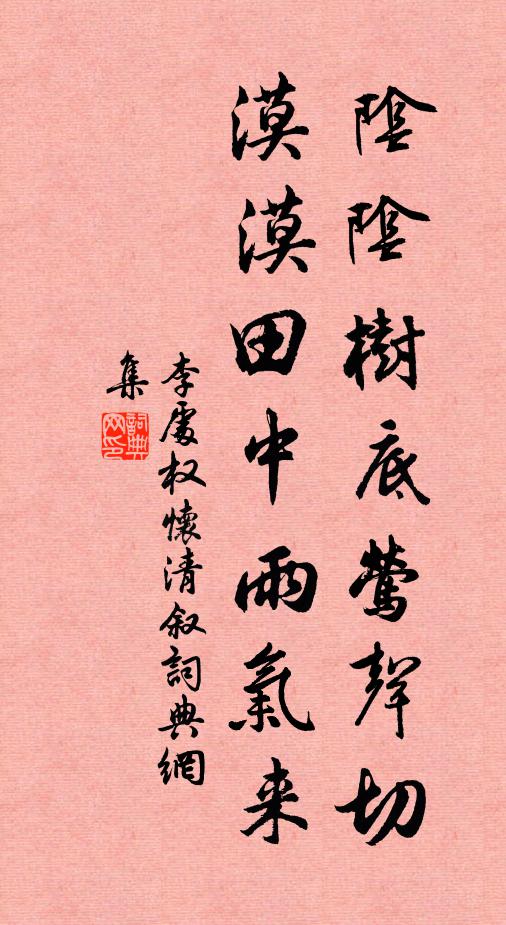 陰陰樹底鶯聲切
漠漠田中雨氣来
李處权懷清叙詞典網
集
詞典网印